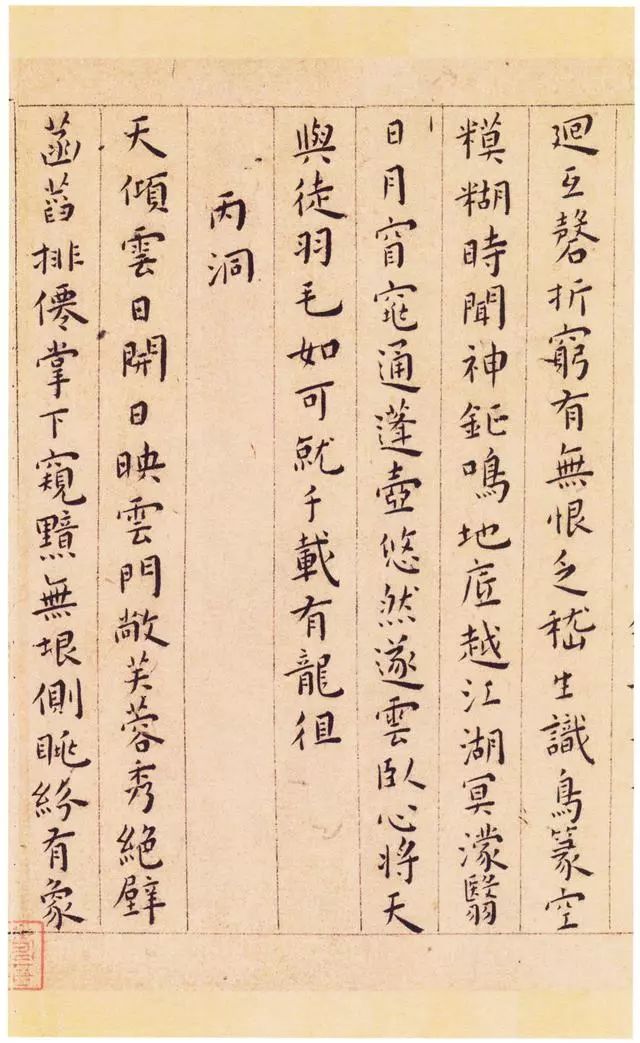 廻互磬折窮有無恨乏嵇生識鳥篆空
糢糊時聞神鉅鳴地底越江湖冥濛翳
日月窅窕通蓬壺悠然遂雲臥心將天
與徒羽毛如可就千載有龍徂
丙洞
天傾雲日開日映雲門敞芙蓉秀絕壁
菡萏排僊掌下窺黯無垠側眺紛有象